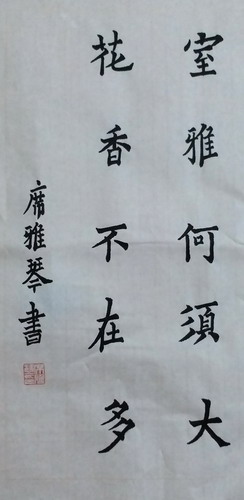 室雅何須大
花香不在多
席雅琴書